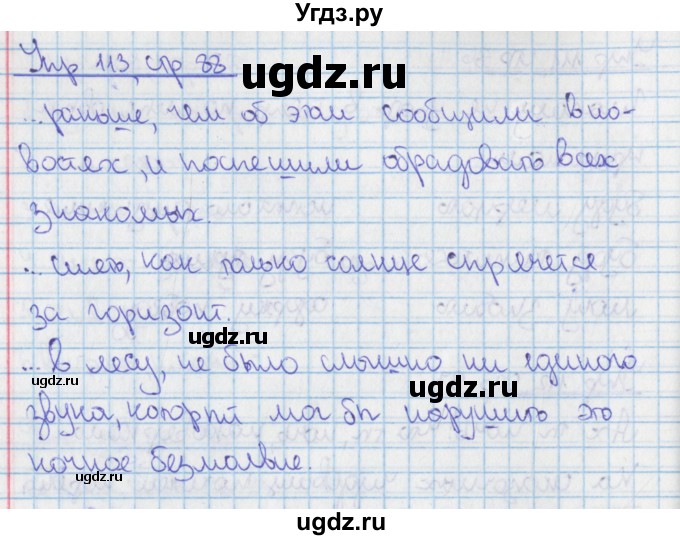 Угдз.ру
Упр 113, стр 88
ugdz.ru
...раньше, чем об этом сообщили в но-
востях, и поспешили обрадовать всех
знакомых.
ugdz.ru
... сиять, как только солнце спрячется
за горизонт.
ugdz.ru
... в лесу, не было слышно ни единого
ugdz.ru
ugdz.ru
звука, который мог бы нарушить это
ночное безмолвие.
ugdz.ru
ugdz.ru